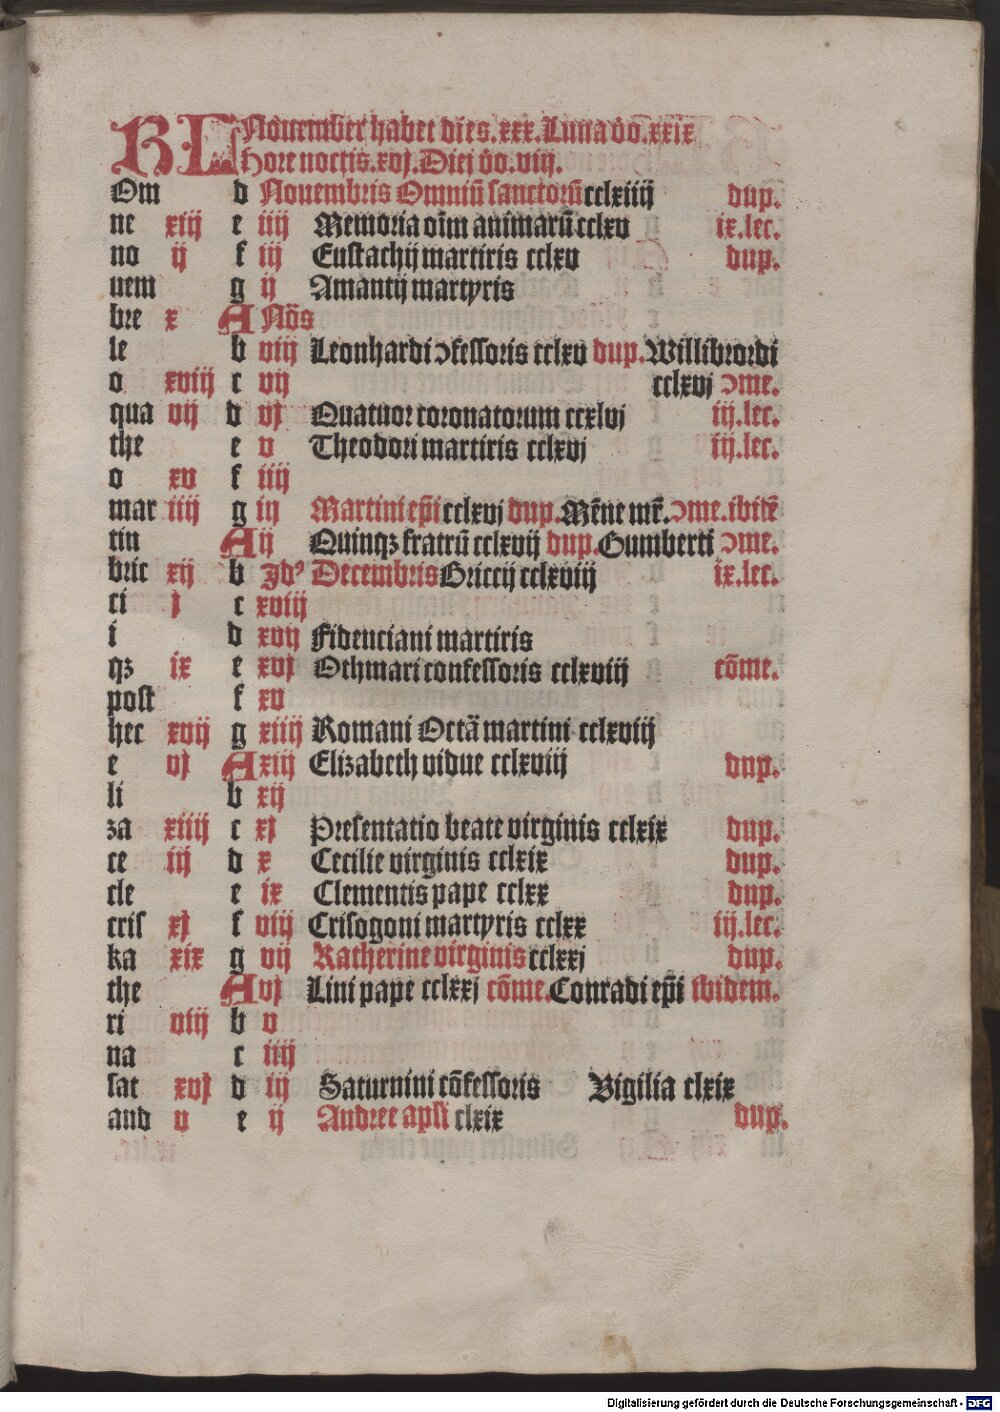 KL Nouember habet dies.xxx.Luna v̄o.xxix
Hore noctis.xvj.Diei v̄o.viij.
Om d Nouembris Omniū sanctorū cclxiiij dup.
ne xiij e iiij Memoria oīm animarū cclxv ix.lec.
no ij f iij Eustachij martiris cclxv dup.
uem g ij Amantij martyris
bre x A Nōs
le b viij Leonhardi ↄfessoris cclxv dup.Willibrordi
o xviij c vij cclxvj ↄme.
qua vij d vj Quatuor coronatorum ccxlvj iij.lec.
the e v Theodori martiris cclxvj iij.lec.
o xv f iiij
mar iiij g iij Martini ep̄i cclxvj dup.Mēne mr̄.ↄme.ibitē
tin A ij Quinqꝫ fratrū cclxvij dup.Gumberti ↄme.
bric xij b Jdꝰ Decembris Briccij cclxviij ix.lec.
ci j c xviij
i d xvij Fidenciani martiris
qꝫ ix e xvj Othmari confessoris cclxviij cōme.
post f xv
hec xvij g xiiij Romani Octā martini cclxviij
e vj A xiij Elizabeth vidue cclxviij dup.
li b xij
za xiiij c xj Presentatio beate virginis cclxix dup.
ce iij d x Cecilie virginis cclxix dup.
cle e ix Clementis pape cclxx dup.
cris xj f viij Crisogoni martyris cclxx iij.lec.
ka xix g vij Katherine virginis cclxxj dup.
the A vj Lini pape cclxxj cōme.Conradi ep̄i ibidem.
ri viij b v
na c iiij
sat xvj d iij Saturnini cōfessoris Vigilia clxix
and v e ij Andree apl̄i clxix dup.
Digitalisierung gefördert durch die Deutsche Forschungsgemeinschaft - DFG